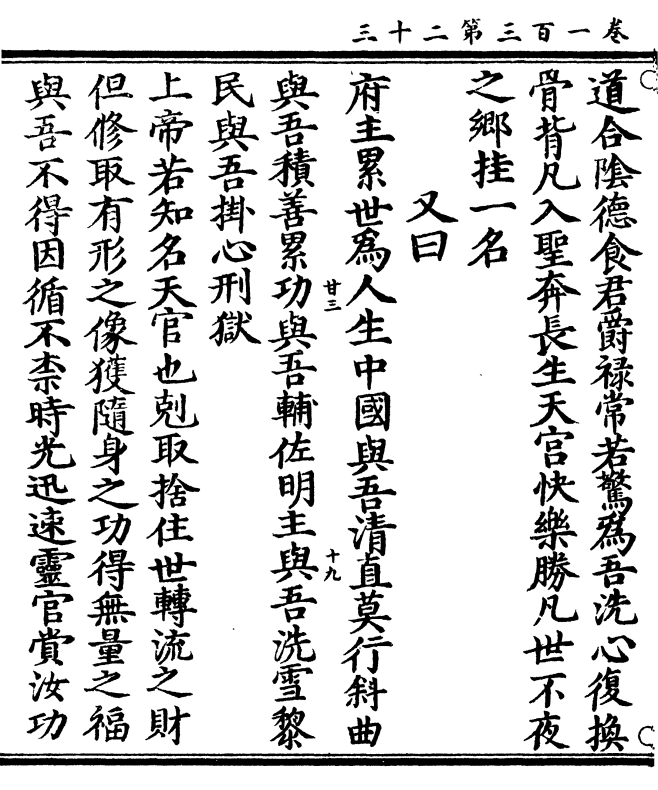 卷一百三第二十三
道合陰德食君爵祿常若驚爲吾洗心復換
骨背凡入聖奔長生天宮快樂勝凡世不夜
之鄉挂一名
又曰
府主累世爲人生中國與吾清直莫行斜曲
廿三
十九
與吾積善累功與吾輔佐明主與吾洗雪黎
民與吾掛心刑獄
上帝若知名天官也剋取捨住世轉流之財
但修取有形之像獲隨身之功得無量之福
與吾不得因循不柰時光迅速靈官賞汝功